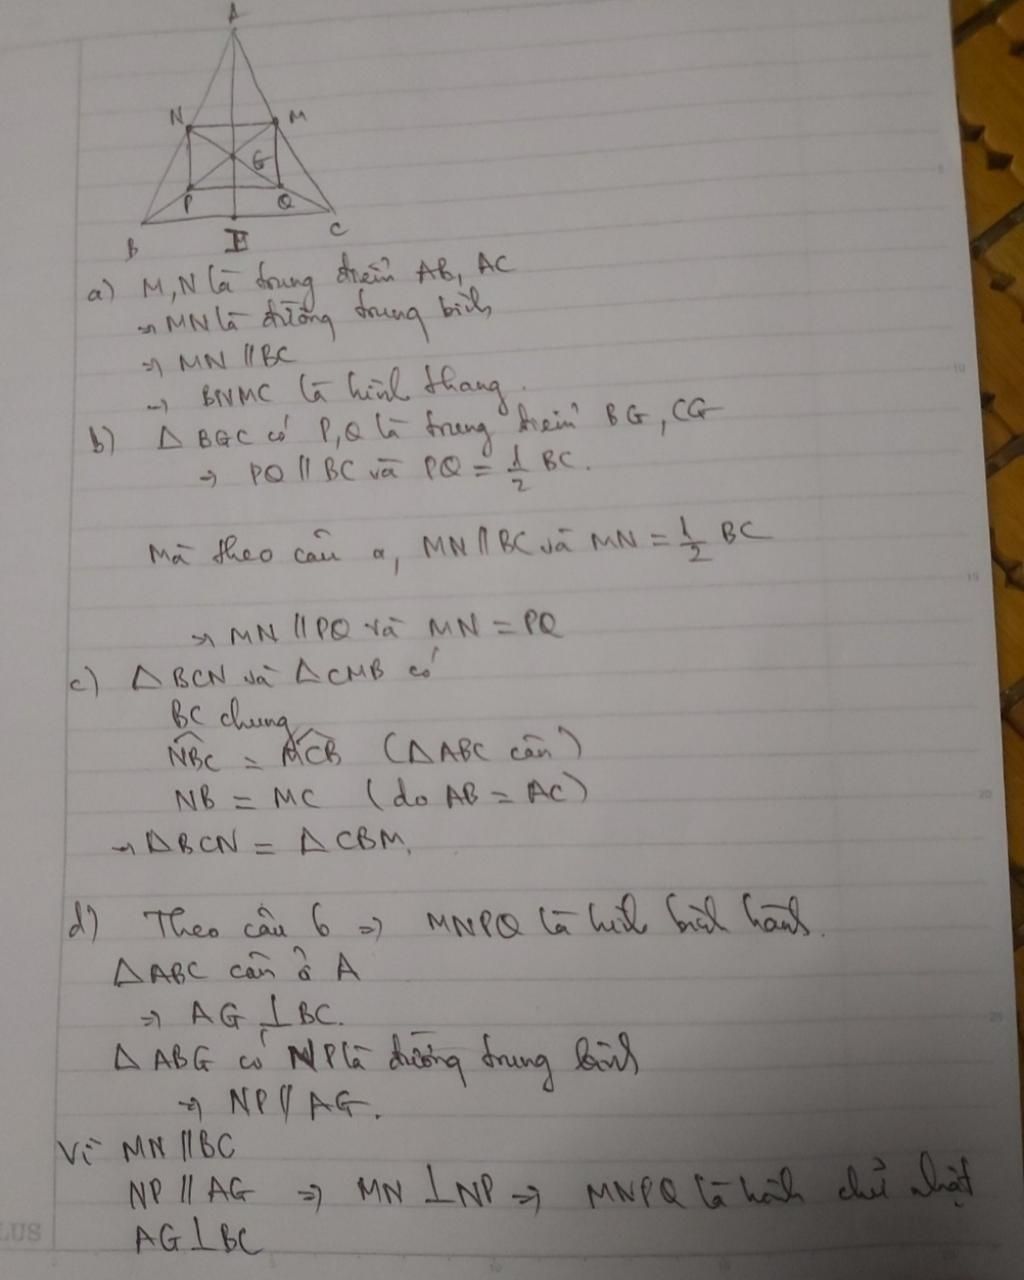 A
N M
G
P Q
B E C
a) M, N là trung điểm AB, AC
→ MN là đường trung bình
⇒ MN // BC
→ BNMC là hình thang.
b) Δ BGC có P, Q là trung điểm BG, CG
→ PQ // BC và PQ = 1/2 BC.
Mà theo câu a, MN // BC và MN = 1/2 BC
→ MN // PQ và MN = PQ
c) Δ BCN và Δ CMB có
BC chung
\widehat{NBC} = \widehat{MCB} (Δ ABC cân)
NB = MC (do AB = AC)
→ Δ BCN = Δ CBM.
d) Theo câu b ⇒ MNPQ là hình bình hành.
Δ ABC cân ở A
⇒ AG ⊥ BC.
Δ ABG có NP là đường trung bình
⇒ NP // AG.
Vì MN // BC
NP // AG ⇒ MN ⊥ NP ⇒ MNPQ là hình chữ nhật
AG ⊥ BC
LUS
5
10
15
20
25